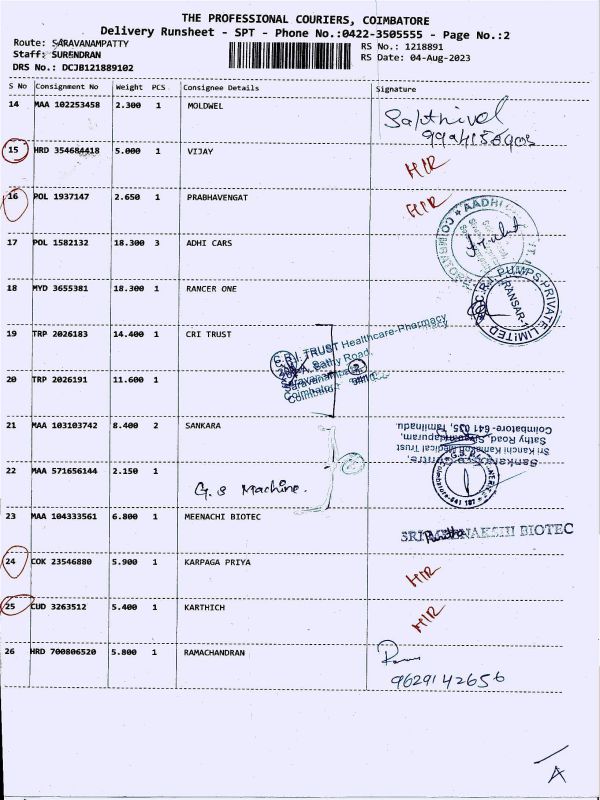 THE PROFESSIONAL COURIERS, COIMBATORE
Delivery Runsheet - SPT - Phone No.:0422-3505555 - Page No.:2
Route: SARAVANAMPATTY RS No.: 1218891
Staff: SURENDRAN RS Date: 04-Aug-2023
DRS No.: DCJB121889102
S No Consignment No Weight PCS Consignee Details Signature
14 MAA 102253458 2.300 1 MOLDWEL
15 HRD 354684418 5.000 1 VIJAY HIR
16 POL 1937147 2.650 1 PRABHAVENGAT HIR
17 POL 1582132 18.300 3 ADHI CARS
AADHI
18 MYD 3655381 18.300 1 RANCER ONE
C.R.I. PUMPS PRIVATE LIMITED
19 TRP 2026183 14.400 1 CRI TRUST
C.R.I. TRUST Healthcare-Pharmacy
Sathy Road,
Coimbatore
20 TRP 2026191 11.600 1
21 MAA 103103742 8.400 2 SANKARA
Sri Kanchi Kamakoti Medical Trust
Sathy Road, Sivanandapuram,
Coimbatore- 641 035, Tamilnadu
22 MAA 571656144 2.150 1 G.S Machine.
23 MAA 104333561 6.800 1 MEENACHI BIOTEC
BIOTEC
24 COK 23546880 5.900 1 KARPAGA PRIYA HIR
25 CUD 3263512 5.400 1 KARTHICH HIR
26 HRD 700806520 5.800 1 RAMACHANDRAN
9629142656
A